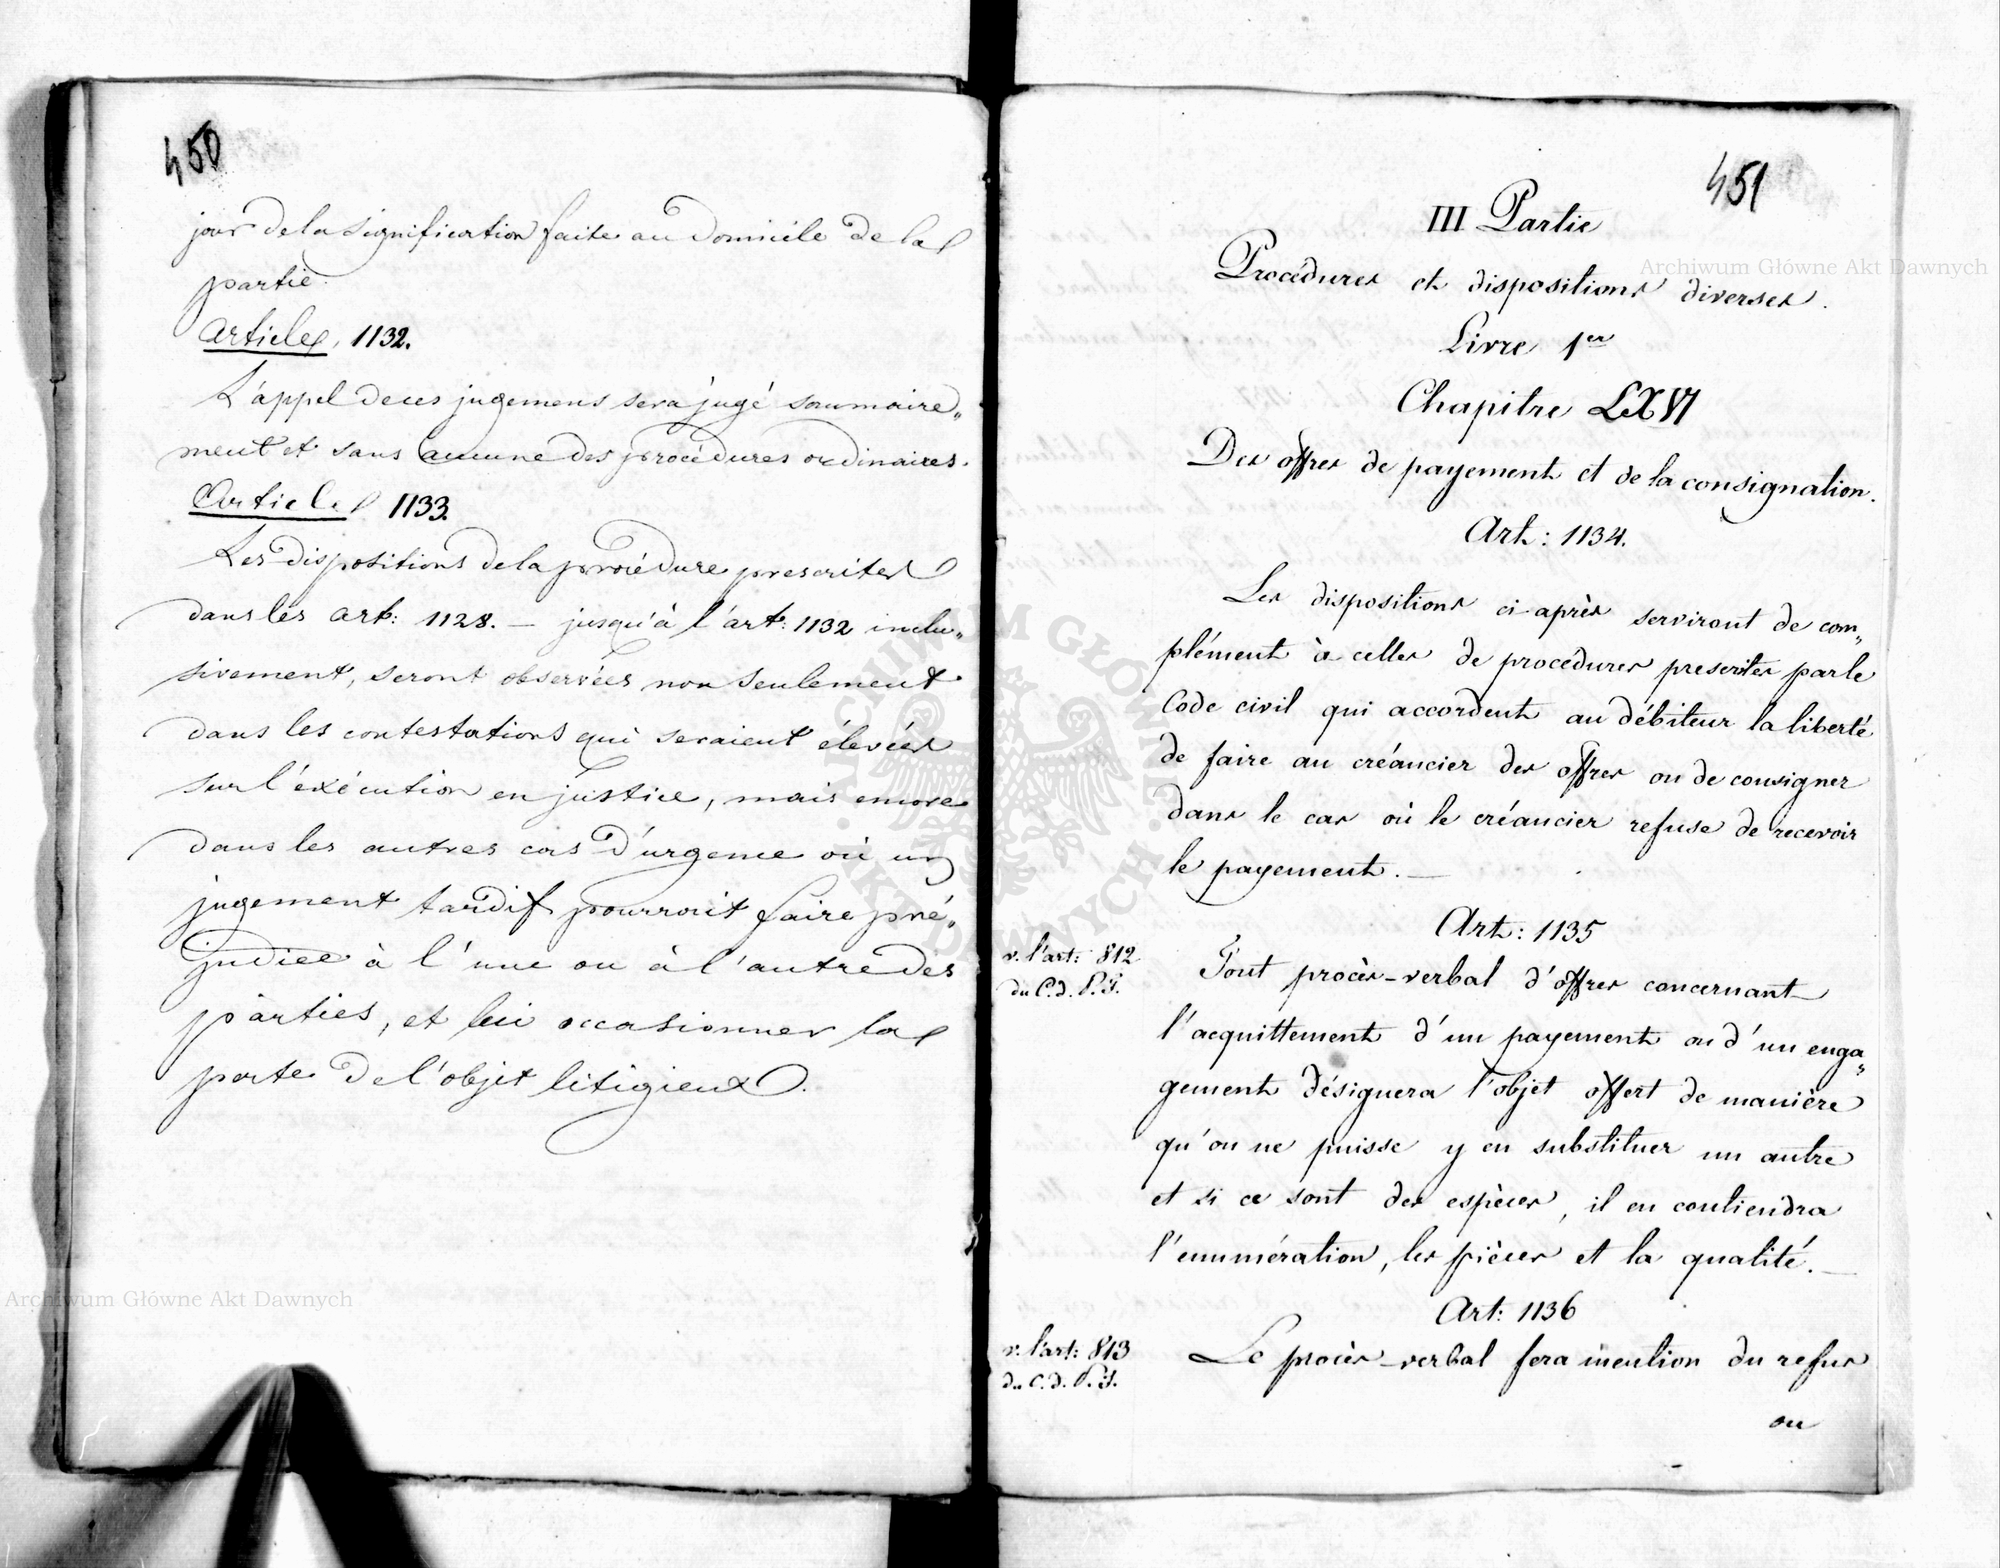 450
jour de la signification faite au domicile de la
partie.
Article 1132.
L'appel de ces jugemens sera jugé sommaire„
ment et sans aucune des procédures ordinaires.
Article 1133.
Les dispositions de la procédure prescrites
dans les art: 1128. — jusqu'à l'art: 1132 inclu„
sivement, seront observées non seulement
dans les contestations qui seraient élevées
sur l'exécution en justice, mais encore
dans les autres cas d'urgence où un
jugement tardif pourrait faire pré„
judice à l'une ou à l'autre des
parties, et lui occasionner la
perte de l'objet litigieux.
451
III Partie
Procédures et dispositions diverses.
Livre 1er
Chapitre LXVI
Des offres de payement et de la consignation.
Art: 1134.
Les dispositions ci-après serviront de com„
plément à celles de procédures prescrites par le
Code civil qui accordent au débiteur la liberté
de faire au créancier des offres ou de consigner
dans le cas où le créancier refuse de recevoir
le payement. —
Art: 1135
v. l'art: 812
du C. d. P. F.
Tout procès-verbal d'offres concernant
l'acquittement d'un payement ou d'un enga„
gement désignera l'objet offert de manière
qu'on ne puisse y en substituer un autre
et si ce sont des espèces, il en contiendra
l'enumération, les pièces et la qualité. —
Art: 1136
v. l'art: 813
du C. d. P. F.
Le procès-verbal fera mention du refus
ou
Archiwum Główne Akt Dawnych
Archiwum Główne Akt Dawnych
ARCHIWUM GŁÓWNE AKT DAWNYCH